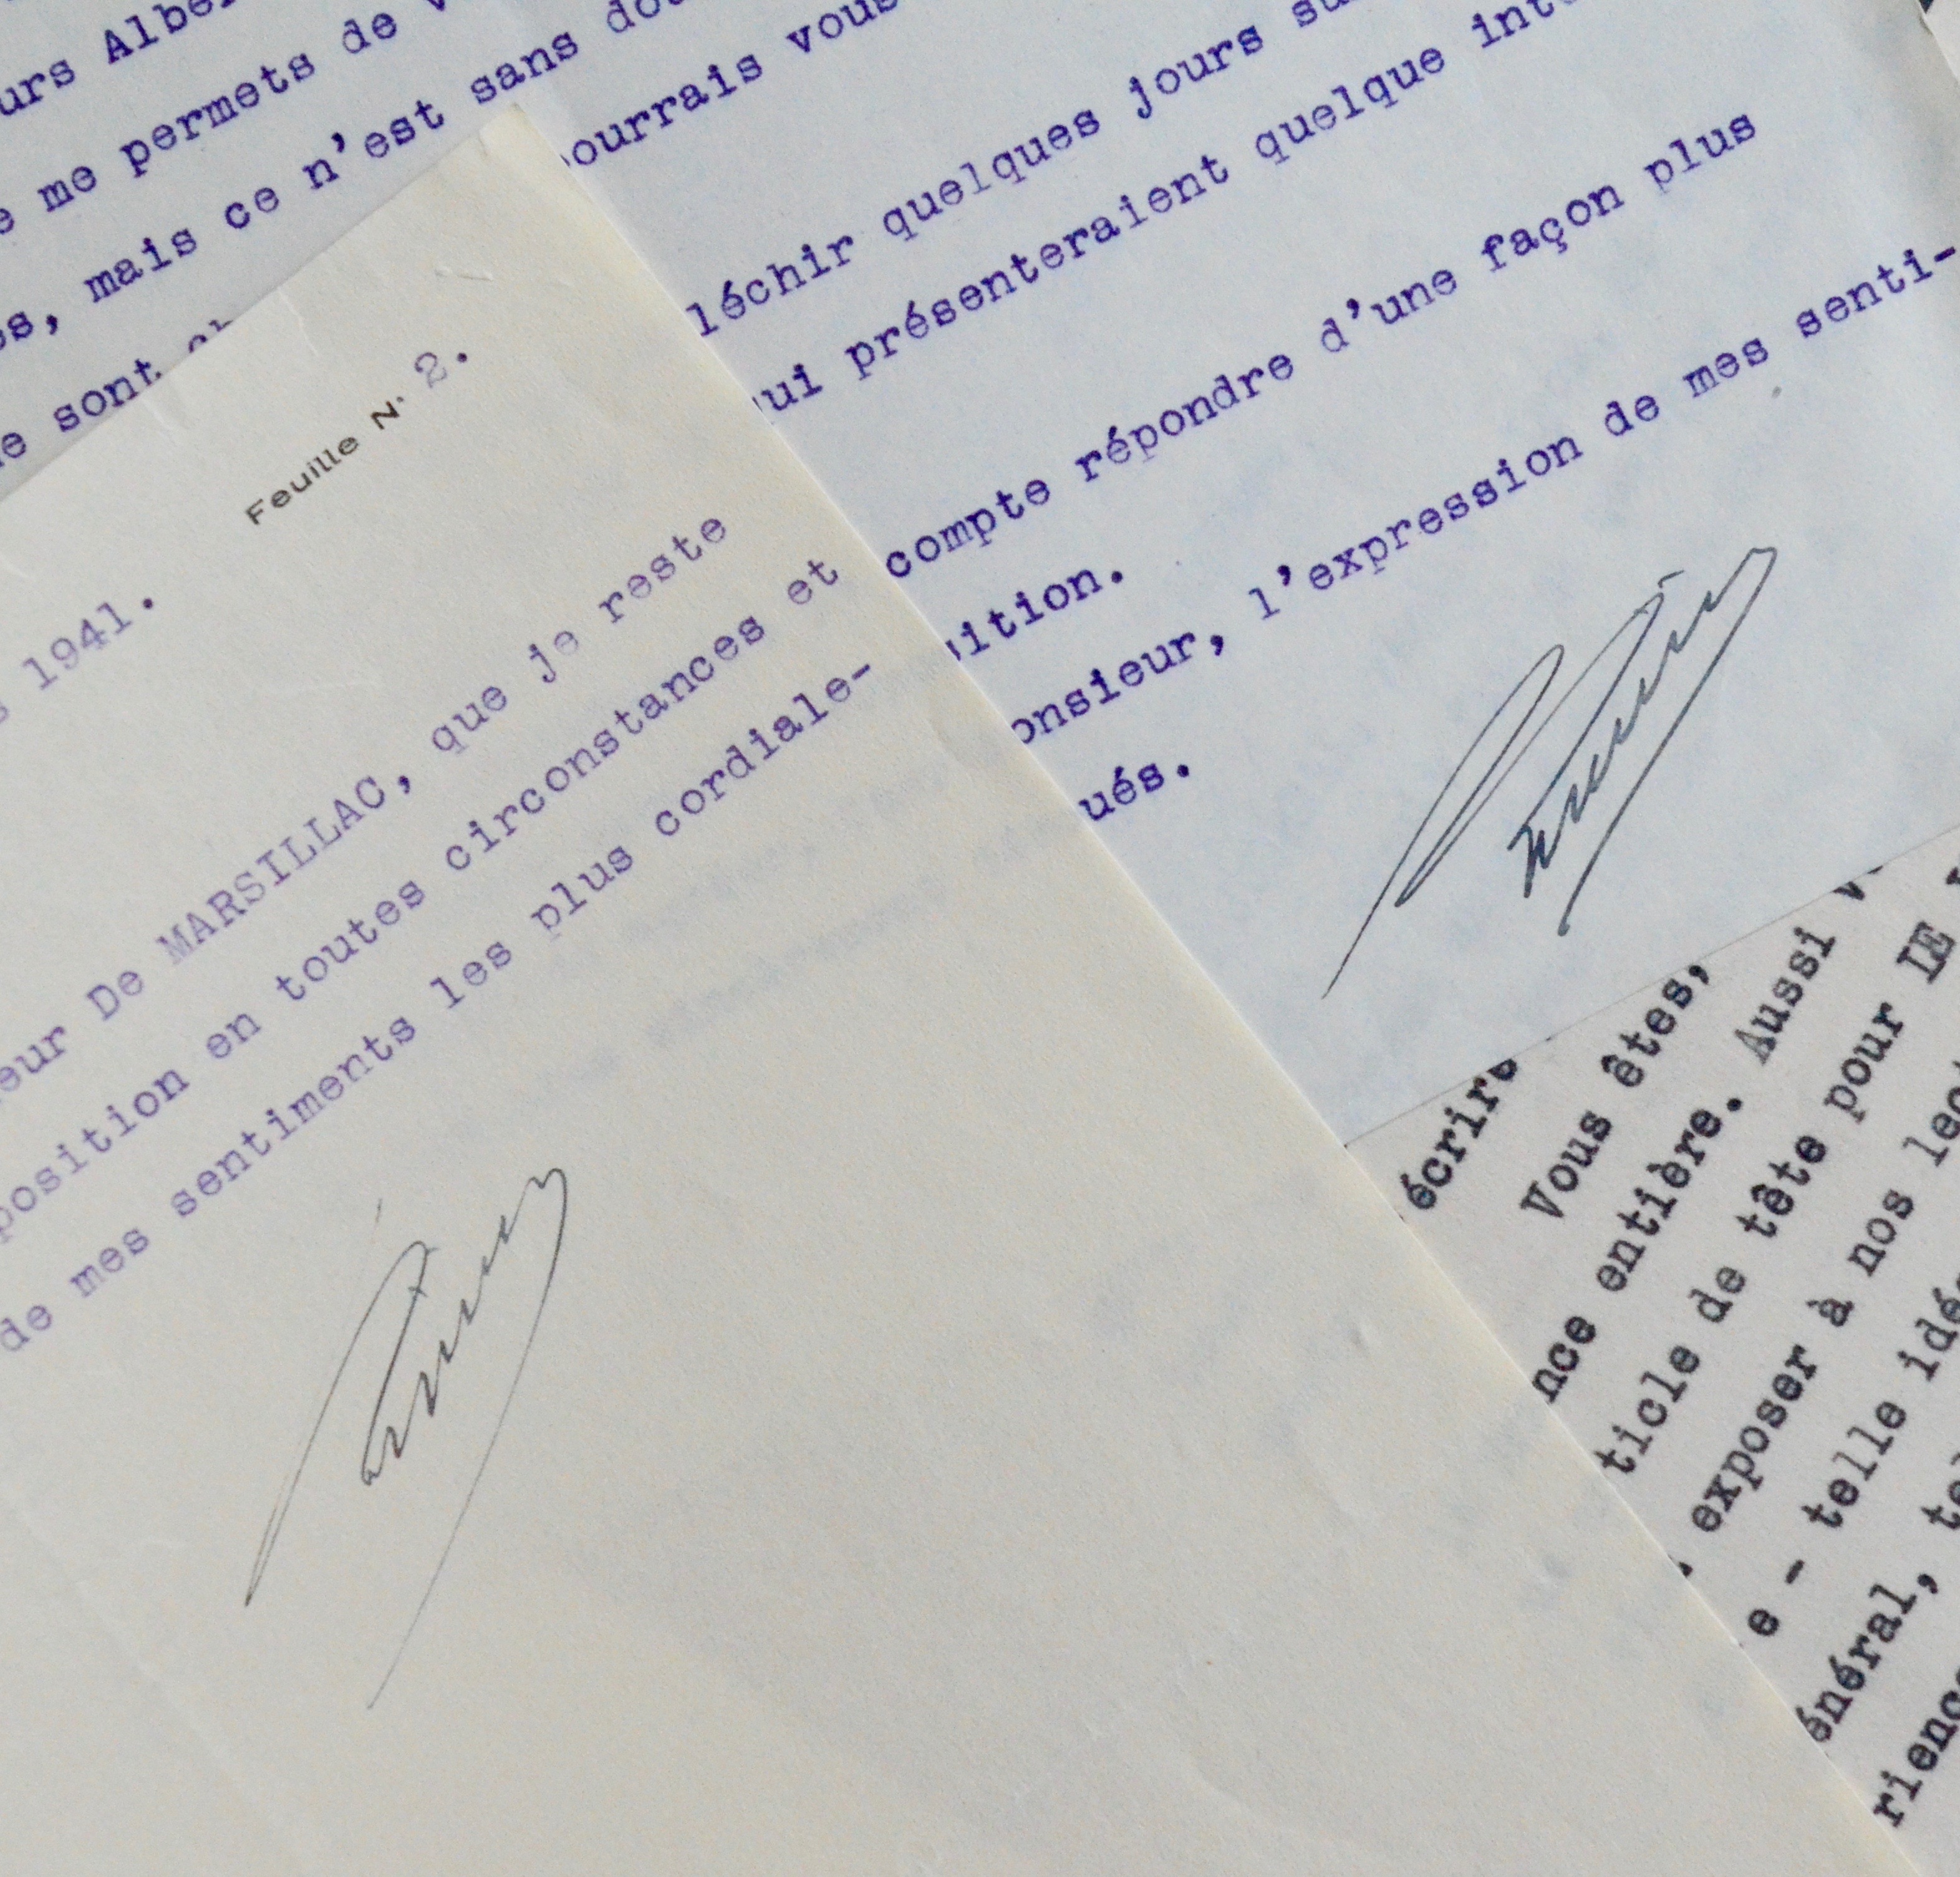 urs Albe
e me permets de v
es, mais ce n'est sans dou
e sont
ourrais vous
léchir quelques jours su
ui présenteraient quelque inté
compte répondre d'une façon plus
ition.
onsieur, l'expression de mes senti-
ués.
Feuille N° 2.
s 1941.
eur De MARSILLAC, que je reste
position en toutes circonstances et
de mes sentiments les plus cordiale-
écrire
Vous êtes,
nce entière. Aussi v
ticle de tête pour LE
exposer à nos lect
e - telle idé
énéral, tel
rienc